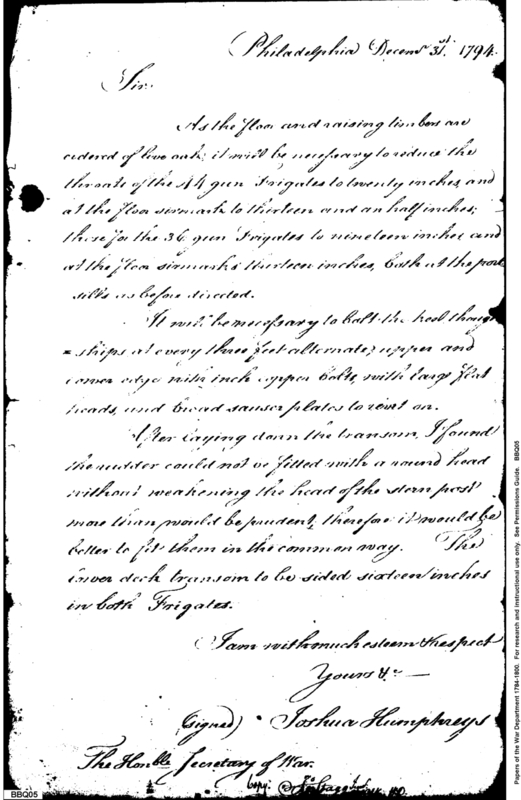 Philadelphia Decemr 31st. 1794.
Sir.
As the floor and raising timbers are
ordered of live oak; it will be necessary to reduce the
throats of the 44 gun Frigates to twenty inches, and
at the floor sirmark to thirteen and an half inches;
those for the 36 gun Frigates to nineteen inches, and
at the floor sirmarks thirteen inches, both at the port
sills as before directed.
It will be necessary to bolt the keel, though
= ships at every three feet alternate, upper and
lower edge with inch copper bolts, with large flat
heads, and broad sauser plates to rivet on.
After laying down the transom, I found
the rudder could not be fitted with a round head
without weakening the head of the stern post
more than would be prudent, therefore it would be
better to fit them in the common way. The
lower deck transom to be sided sixteen inches
in both Frigates.
I am with much esteem & respect
Yours &c
(signed) Joshua Humphreys
The Honble Secretary of War.
Copy.
BBQ05
Papers of the War Department 1784-1800. For research and instructional use only. See Permissions Guide. BBQ05